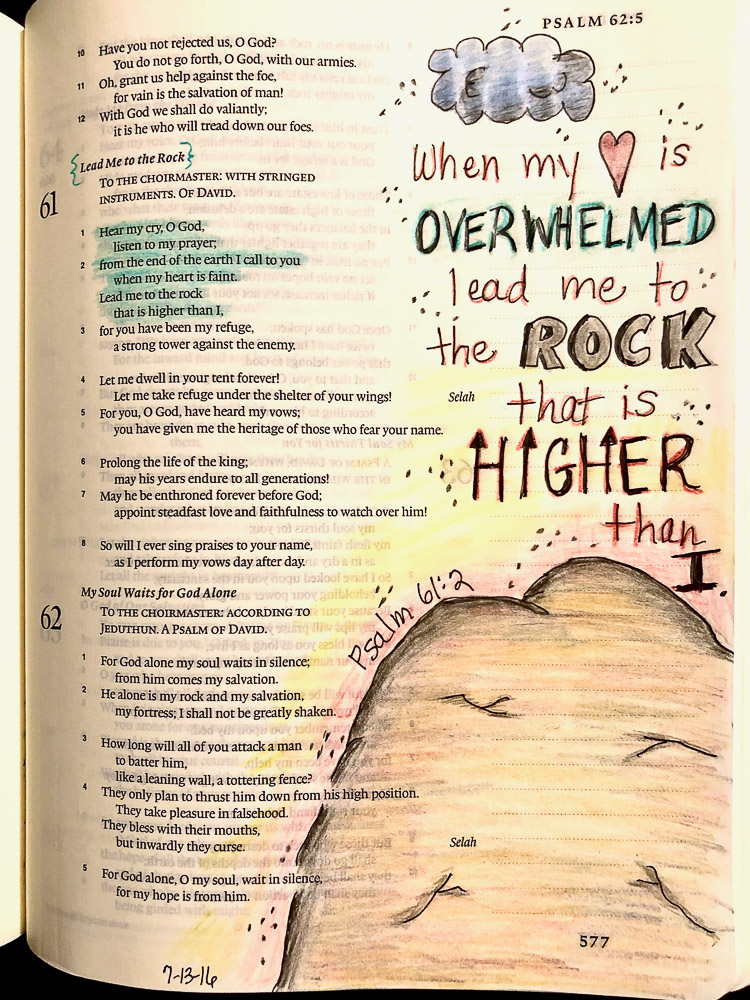 PSALM 62:5
10 Have you not rejected us, O God?
You do not go forth, O God, with our armies.
11 Oh, grant us help against the foe,
for vain is the salvation of man!
12 With God we shall do valiantly;
it is he who will tread down our foes.
Lead Me to the Rock
61 TO THE CHOIRMASTER: WITH STRINGED
INSTRUMENTS. OF DAVID.
1 Hear my cry, O God,
listen to my prayer;
2 from the end of the earth I call to you
when my heart is faint.
Lead me to the rock
that is higher than I,
3 for you have been my refuge,
a strong tower against the enemy.
4 Let me dwell in your tent forever!
Let me take refuge under the shelter of your wings! Selah
5 For you, O God, have heard my vows;
you have given me the heritage of those who fear your name.
6 Prolong the life of the king;
may his years endure to all generations!
7 May he be enthroned forever before God;
appoint steadfast love and faithfulness to watch over him!
8 So will I ever sing praises to your name,
as I perform my vows day after day.
My Soul Waits for God Alone
62 TO THE CHOIRMASTER: ACCORDING TO
JEDUTHUN. A PSALM OF DAVID.
1 For God alone my soul waits in silence;
from him comes my salvation.
2 He alone is my rock and my salvation,
my fortress; I shall not be greatly shaken.
3 How long will all of you attack a man
to batter him,
like a leaning wall, a tottering fence?
4 They only plan to thrust him down from his high position.
They take pleasure in falsehood.
They bless with their mouths,
but inwardly they curse. Selah
5 For God alone, O my soul, wait in silence,
for my hope is from him.
577
7-13-16
When my is
OVERWHELMED
lead me to
the ROCK
that is
HIGHER
than
I.
Psalm 61:2